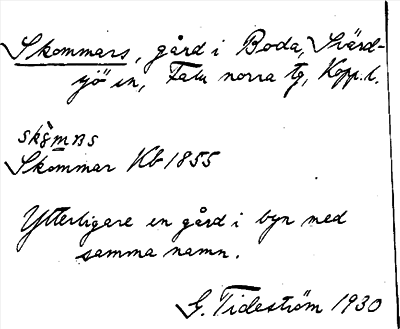 Skommars, gård i Boda, Svärd-
sjö sn, Falu norra tg, Kopp. l.
Skommar Kb 1855
Ytterligare en gård i byn med
samma namn.
G. Tideström 1930